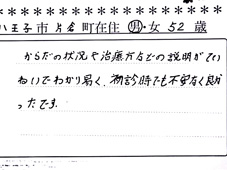 ＊＊＊＊＊＊＊＊＊＊＊＊＊＊＊＊＊＊＊＊
八王子市片倉町在住 男・女 52 歳
からだの状況や治療方法などの説明がてい
ねいでわかり易く、初診時でも不安なく良か
ったです。